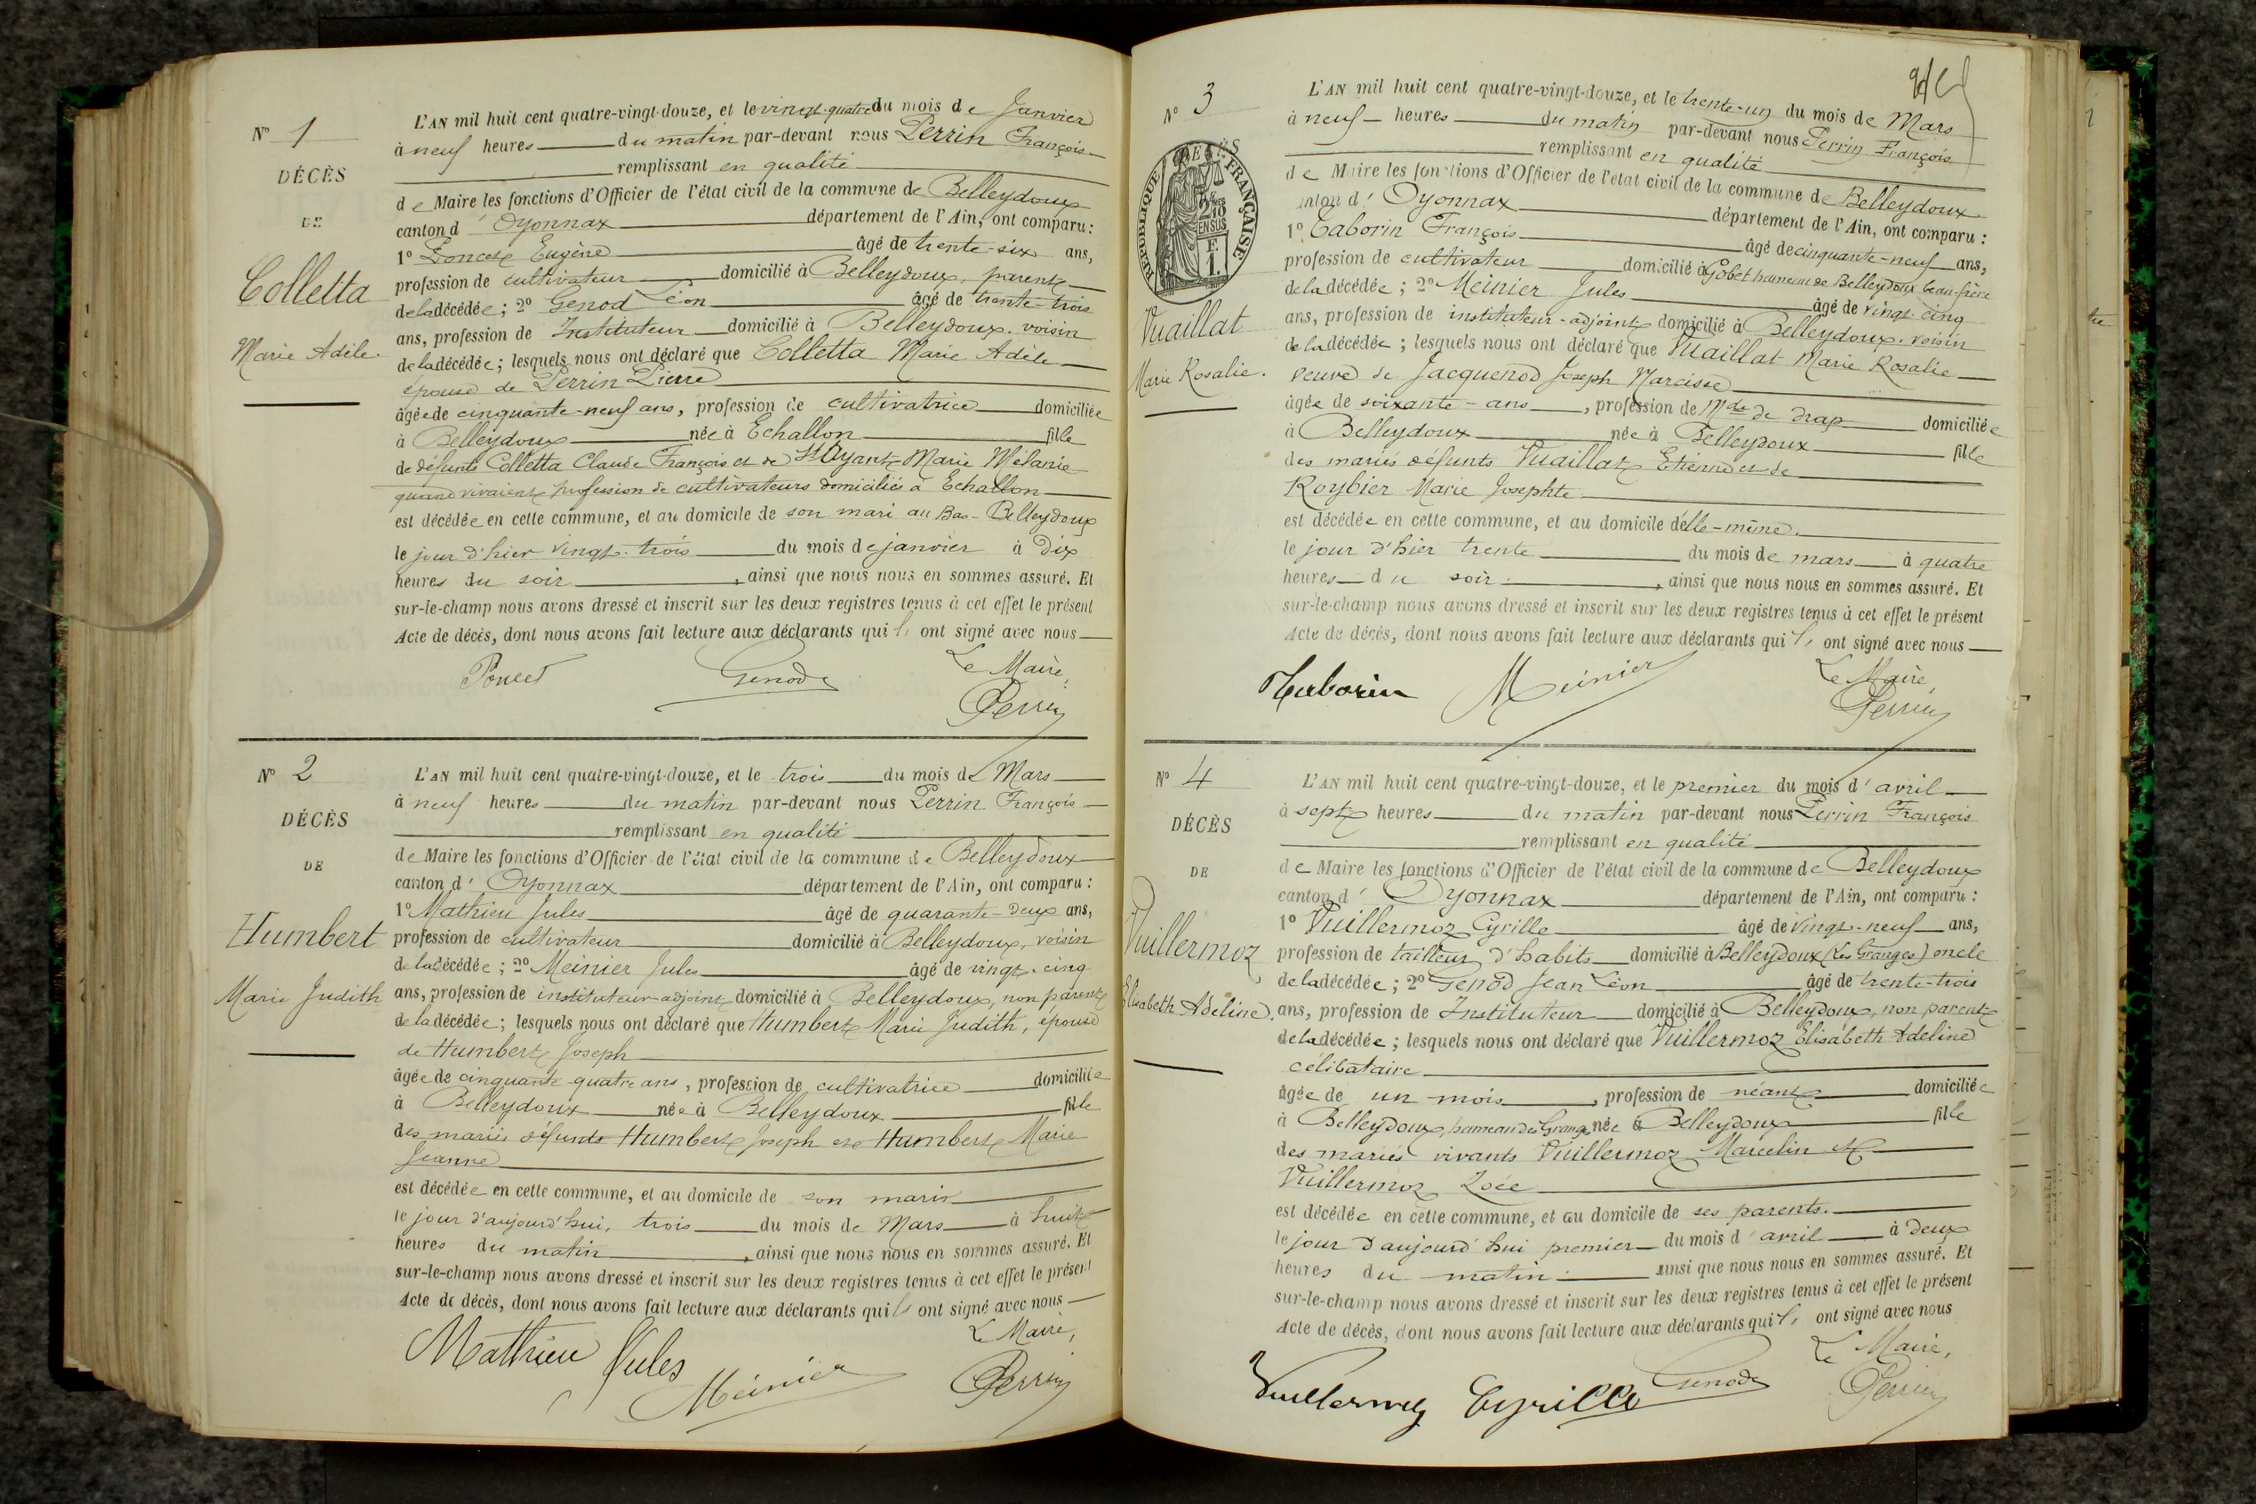 N° 1
DÉCÈS
DE
Colletta
Marie Adèle.
L'AN mil huit cent quatre-vingt-douze, et le vingt-quatre du mois de Janvier
à neuf heures du matin par-devant nous Perrin François
remplissant en qualité
de Maire les fonctions d'Officier de l'état civil de la commune de Belleydoux
canton d' Oyonnax département de l'Ain, ont comparu :
1° Poncet Eugène âgé de trente-six ans,
profession de cultivateur domicilié à Belleydoux, parent
de la décédée ; 2° Genod Léon âgé de trente-trois
ans, profession de Instituteur domicilié à Belleydoux. voisin
de la décédée ; lesquels nous ont déclaré que Colletta Marie Adèle
épouse de Perrin Pierre
âgée de cinquante-neuf ans, profession de cultivatrice domiciliée
à Belleydoux née à Echallon fille
de défunts Colletta Claude François et de St Oyant Marie Mélanie
quand vivaient profession de cultivateurs domiciliés à Echallon
est décédée en cette commune, et au domicile de son mari au Bas-Belleydoux
le jour d'hier vingt-trois du mois de janvier à dix
heures du soir, ainsi que nous nous en sommes assuré. Et
sur-le-champ nous avons dressé et inscrit sur les deux registres tenus à cet effet le présent
Acte de décès, dont nous avons fait lecture aux déclarants qui ls ont signé avec nous
Poncet Genod Le Maire,
Perrin
N° 2
DÉCÈS
DE
Humbert
Marie Judith
L'AN mil huit cent quatre-vingt-douze, et le trois du mois de Mars
à neuf heures du matin par-devant nous Perrin François
remplissant en qualité
de Maire les fonctions d'Officier de l'état civil de la commune de Belleydoux
canton d' Oyonnax département de l'Ain, ont comparu :
1° Mathieu Jules âgé de quarante-deux ans,
profession de cultivateur domicilié à Belleydoux, voisin
de la décédée ; 2° Meinier Jules âgé de vingt-cinq
ans, profession de instituteur-adjoint domicilié à Belleydoux, non parent
de la décédée ; lesquels nous ont déclaré que Humbert Marie Judith, épouse
de Humbert Joseph
âgée de cinquante-quatre ans, profession de cultivatrice domiciliée
à Belleydoux née à Belleydoux fille
des mariés défunts Humbert Joseph et Humbert Marie
Jeanne
est décédée en cette commune, et au domicile de son mari
le jour d'aujourd'hui, trois du mois de Mars à huit
heures du matin, ainsi que nous nous en sommes assuré. Et
sur-le-champ nous avons dressé et inscrit sur les deux registres tenus à cet effet le présent
Acte de décès, dont nous avons fait lecture aux déclarants qui ls ont signé avec nous
Mathieu Jules Meinier Le Maire,
Perrin
N° 3
RÉPUBLIQUE FRANÇAISE
Vuaillat
Marie Rosalie.
L'AN mil huit cent quatre-vingt-douze, et le trente-un du mois de Mars
à neuf heures du matin par-devant nous Perrin François
remplissant en qualité
de Maire les fonctions d'Officier de l'état civil de la commune de Belleydoux
canton d' Oyonnax département de l'Ain, ont comparu :
1° Taborin François âgé de cinquante-neuf ans,
profession de cultivateur domicilié à Gobet hameau de Belleydoux beau-frère
de la décédée ; 2° Meinier Jules âgé de vingt-cinq
ans, profession de instituteur-adjoint domicilié à Belleydoux. voisin
de la décédée ; lesquels nous ont déclaré que Vuaillat Marie Rosalie
veuve de Jacquenod Joseph Narcisse
âgée de soixante-ans, profession de Mde de drap domiciliée
à Belleydoux née à Belleydoux fille
des mariés défunts Vuaillat Etienne et de
Roybier Marie Josephte
est décédée en cette commune, et au domicile d'elle-même.
le jour d'hier trente du mois de mars à quatre
heures du soir, ainsi que nous nous en sommes assuré. Et
sur-le-champ nous avons dressé et inscrit sur les deux registres tenus à cet effet le présent
Acte de décès, dont nous avons fait lecture aux déclarants qui ls ont signé avec nous
Taborin Meinier Le Maire,
Perrin
N° 4
DÉCÈS
DE
Vuillermoz
Elisabeth Adeline.
L'AN mil huit cent quatre-vingt-douze, et le premier du mois d'avril
à sept heures du matin par-devant nous Perrin François
remplissant en qualité
de Maire les fonctions d'Officier de l'état civil de la commune de Belleydoux
canton d' Oyonnax département de l'Ain, ont comparu :
1° Vuillermoz Cyrille âgé de vingt-neuf ans,
profession de tailleur d'habits domicilié à Belleydoux (Les Granges) oncle
de la décédée ; 2° Genod Jean Léon âgé de trente-trois
ans, profession de Instituteur domicilié à Belleydoux, non parent
de la décédée ; lesquels nous ont déclaré que Vuillermoz Elisabeth Adeline
célibataire
âgée de un mois, profession de néant domiciliée
à Belleydoux, hameau des Granges née à Belleydoux fille
des mariés vivants Vuillermoz Marcelin et
Vuillermoz Zoée
est décédée en cette commune, et au domicile de ses parents.
le jour d'aujourd'hui premier du mois d'avril à deux
heures du matin. ainsi que nous nous en sommes assuré. Et
sur-le-champ nous avons dressé et inscrit sur les deux registres tenus à cet effet le présent
Acte de décès, dont nous avons fait lecture aux déclarants qui ls ont signé avec nous
Vuillermoz Cyrille Genod Le Maire,
Perrin